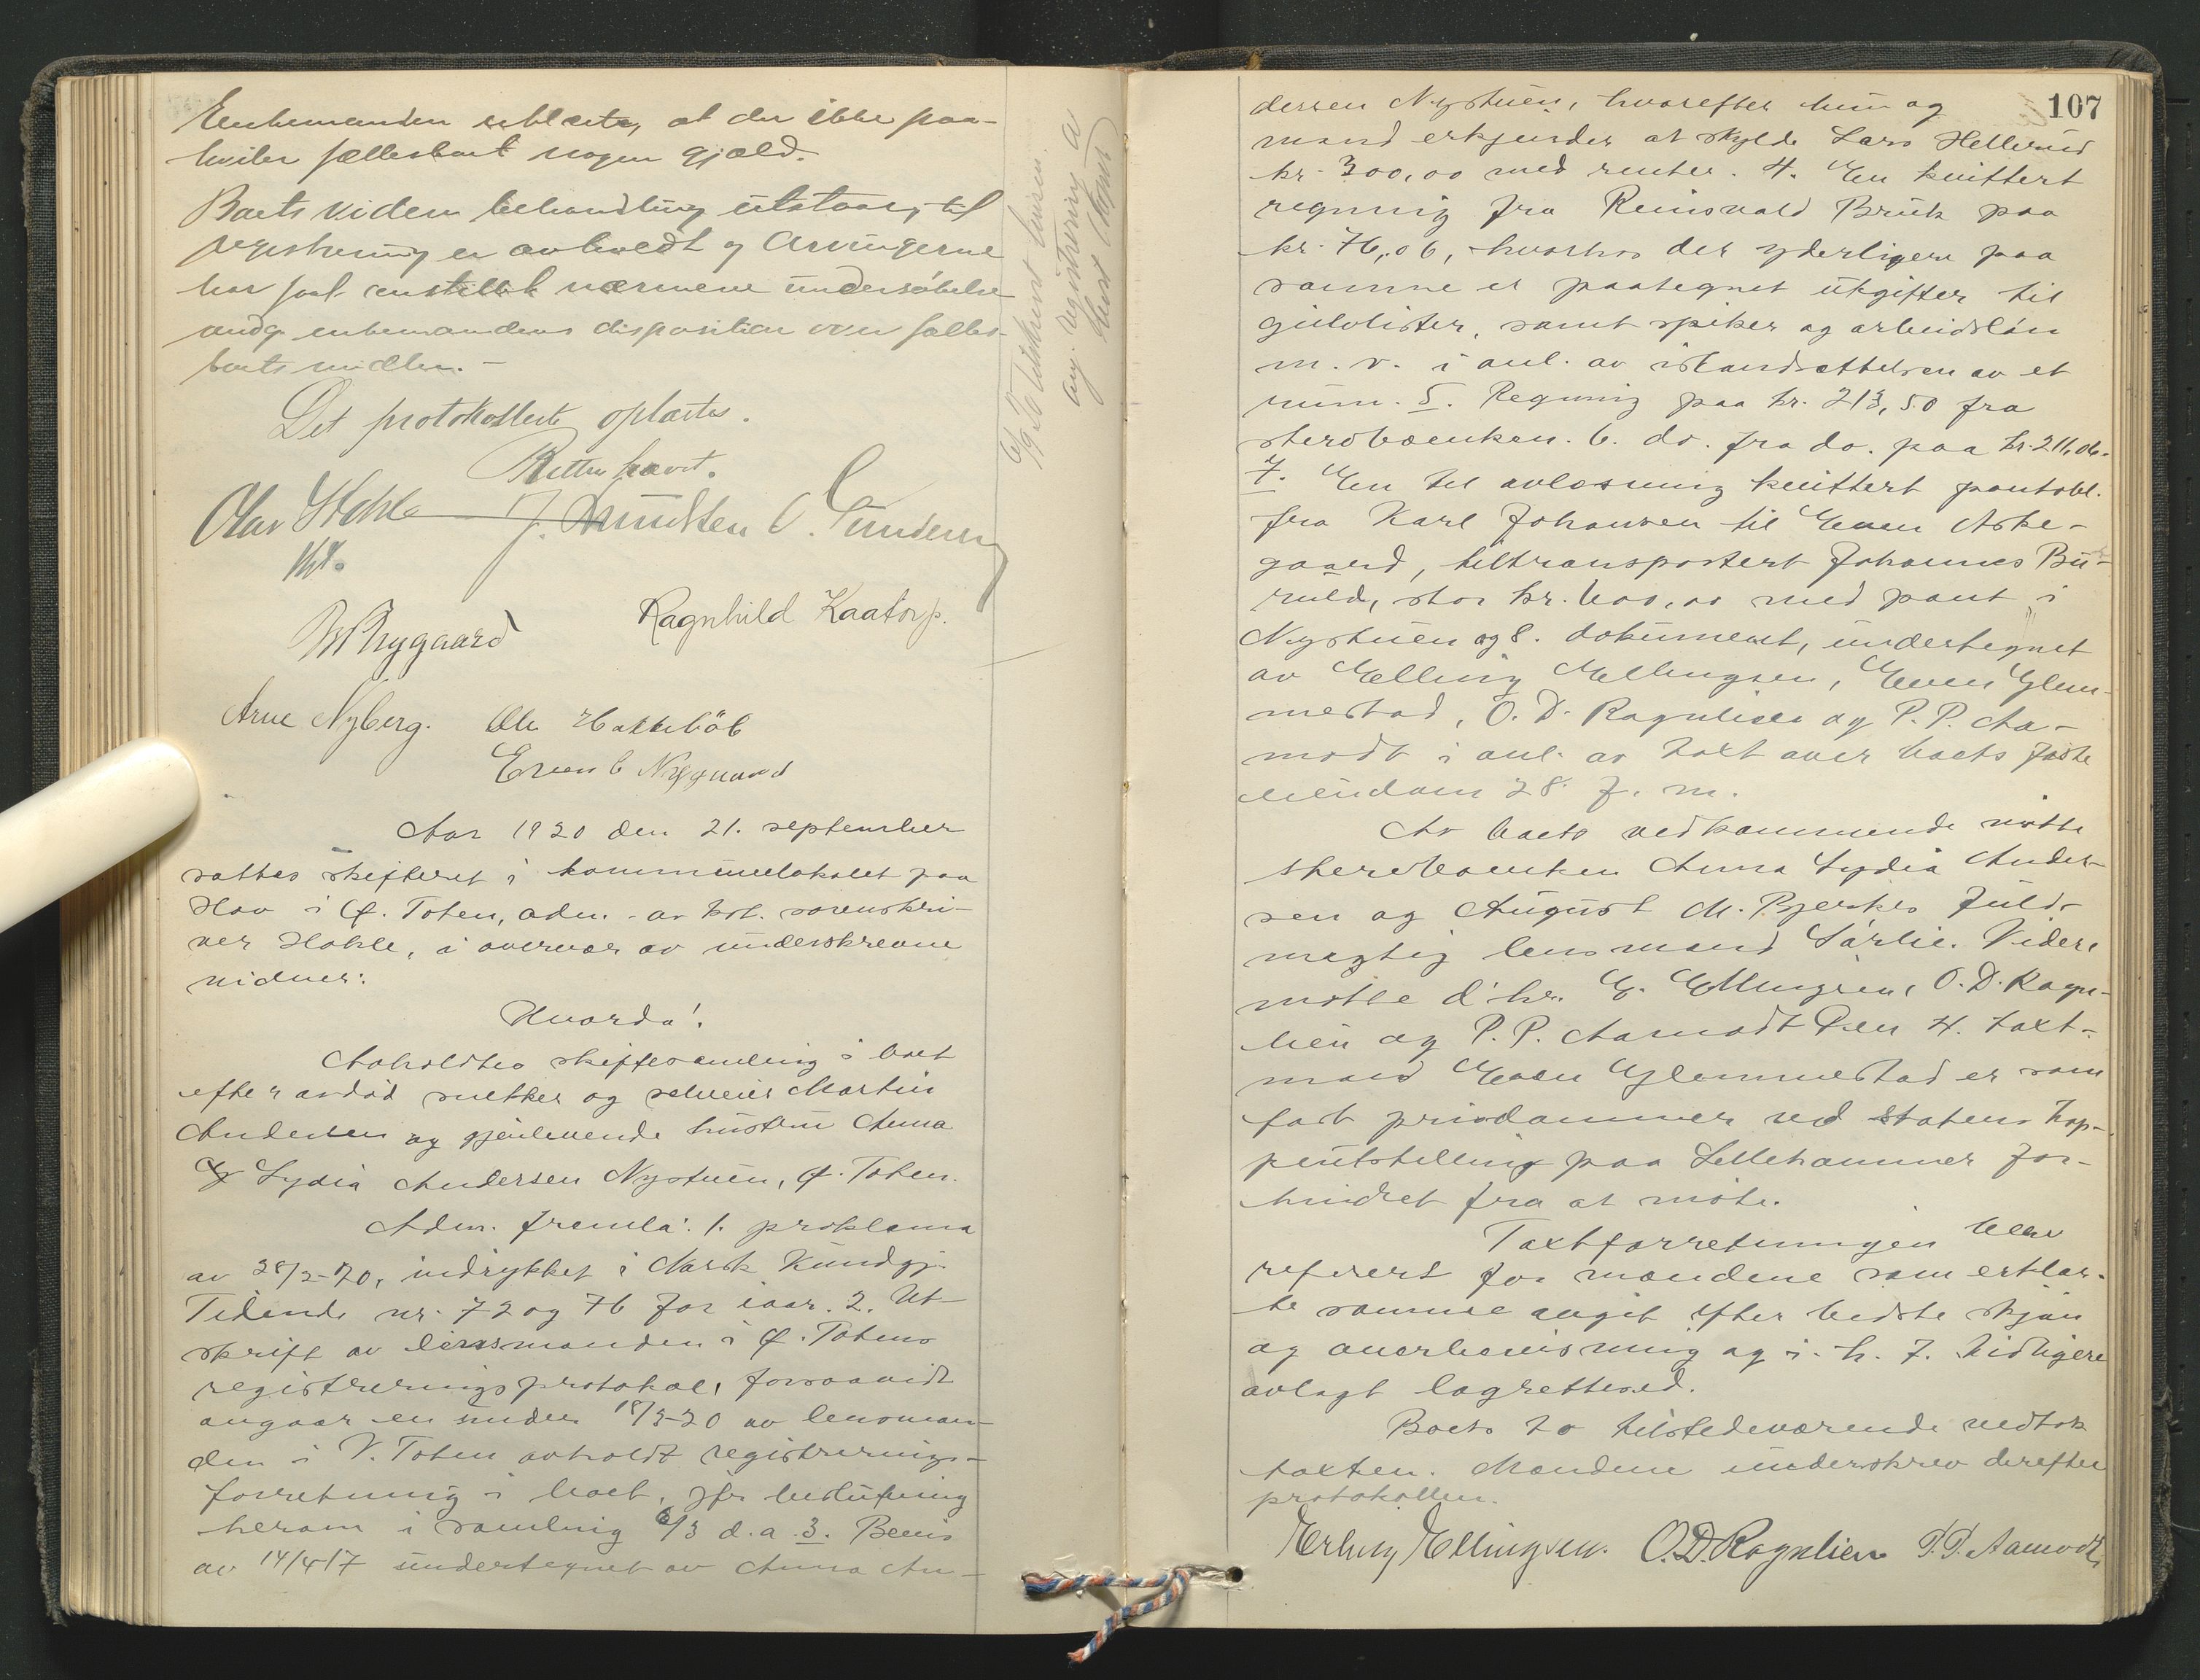 Enkemanden erklærte, at der ikke paa-
hviler fællesboet nogen gjæld.
Boets videre behandling utstaar, til
registrering er avholdt og Arvingerne
har faat anstillet nærmere undersökelse
ang. enkemandens disposition over fælles-
boets midler. -
Det protokollerte oplæstes.
Retten hævet.
Olav Hohle J. Knudsen
kst.
Nygaard Ragnhild Kaatorp.
Arne Nyberg. Ole
Even Nygaard
6/9 20 Utskrift lensm.
ang. registrering a
hos
Aar 1920 den 21. september
sattes skifteret i kommunelokalet paa
Hov i Ø. Toten, adm. av kst. sorenskri-
ver Hohle, i overvær av underskrevne
vidner:
Hvorda!
Avholdtes skiftesamling i boet
efter avdöd snekker og selveier Martin
Andersen og gjenlevende hustru Anna
Lydia Andersen Nystuen, Ø. Toten.
Adm. fremla: 1. proklama
av 28/2-20, indrykket i Norsk Kundgj.
Tidende nr. 72 og 76 for iaar. 2. Ut-
skrift av lensmanden i Ø. Totens
registreringsprotokol, forsaavidt
angaar en under 18/3-20 av lensman-
den i V. Toten avholdt registrerings-
forretning i boet, jfr beslutning
herom i samling 6/3 d.a. 3. Bevis
av 14/4 17 undertegnet av Anna An-
107
dersen Nystuen, hvorefter hun og
mand erkjender at skylde Lars Hellerud
kr. 300,00 med renter. 4. En kvittert
regning fra Reinsvald Bruk paa
kr. 76,06, hvorhos der yderligere paa
samme er paategnet utgifter til
gulvlister, samt spiker og arbeidslön
m. v. i anl. av istandsættelsen av et
rum. 5. Regning paa kr. 213,50 fra
stervboenken. 6. do. fra do. paa kr. 211,06.
7. En til avlæsning kvittert pantobl.
fra Karl Johansen til Even Aske-
gaard, tiltransportert Johannes Bu-
ruld, stor kr. 600,00 med pant i
Nystuen og 8. dokument, undertegnet
av Elling Ellingsen, Even Glem-
mestad, O. D. Ragnlien og P. P. Aa-
modt i anl. av takt over boets faste
eiendom 28. f. m.
Av boets vedkommende mötte
stervboenken Anna Lydia Ander-
sen og August M. Bjerkes fuld-
mægtig lensmand Sörlie. Videre
mötte d'hr. E. Ellingsen, O. D. Ragn-
lien og P. P. Aamodt. Den 4. taxt-
mand Even Glemmestad er som
fast prisdommer ved statens hop-
peutstilling paa Lillehammer for-
hindret fra at möte.
Taxtforretningen blev
referert for mændene som erklær-
te samme avgit efter bedste skjön
og overbevisning og i h. t. tidligere
avlagt lagretteed.
Boets to tilstedeværende vedtok
taxten. Mændene underskrev derefter
protokollen.
Erling Ellingsen. O. D. Ragnlien P. P. Aamodt